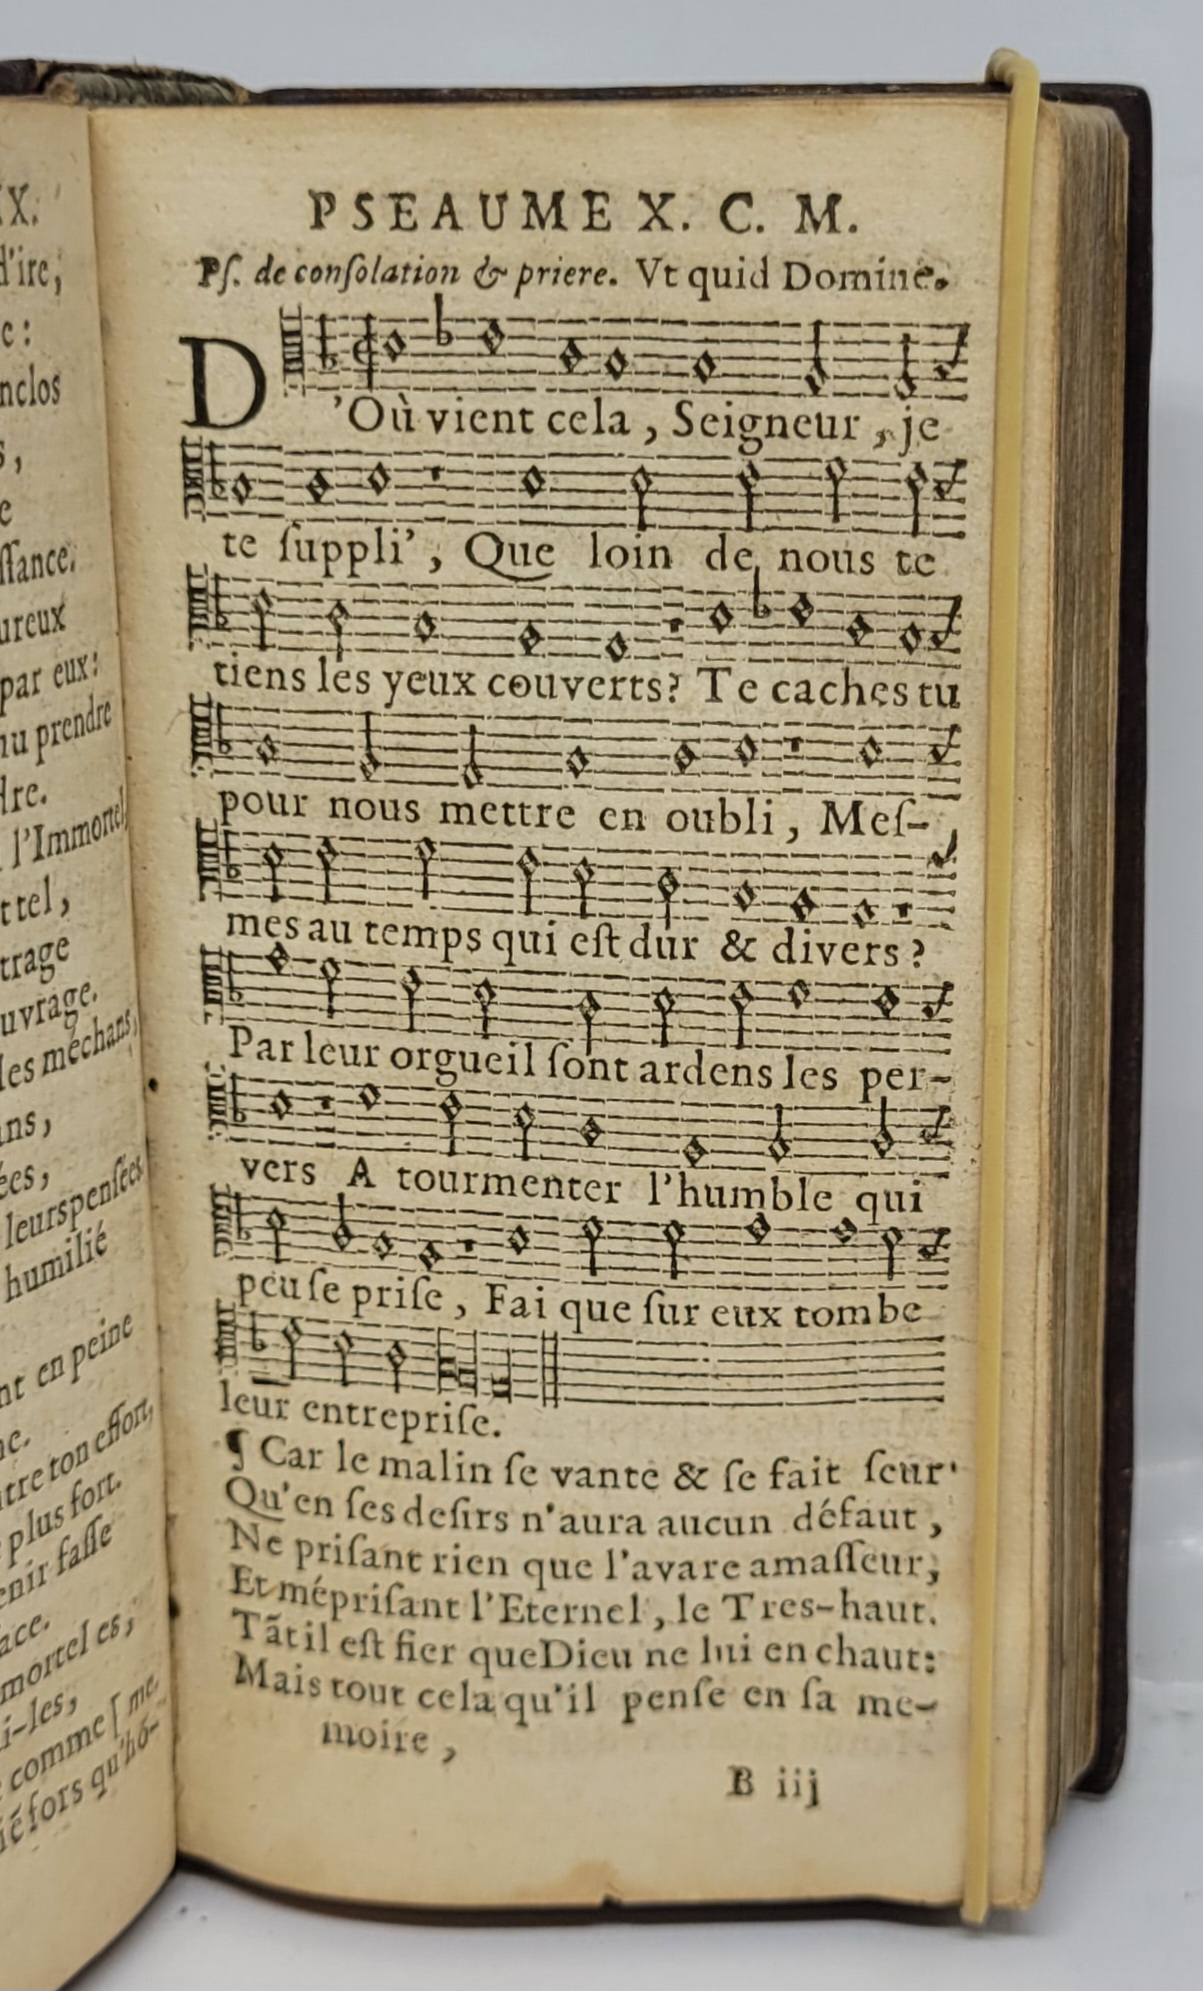 IX.
d'ire,
e:
nclos
s,
e
ſſance.
ureux
par eux:
nu prendre
dre.
l'Immortel,
ttel,
trage
uvrage.
les méchans,
ans,
ées,
leurspenſées
humilié
nt en peine
ne.
ntre ton effort,
plus fort.
enir faſſe
ace.
mortel es,
i-les,
comme [me.
ié fors qu'hō-
PSEAUME X. C. M.
Pſ. de conſolation & priere. Vt quid Domine.
D'Où vient cela, Seigneur, je
te ſuppli', Que loin de nous te
tiens les yeux couverts? Te caches tu
pour nous mettre en oubli, Meſ-
mes au temps qui eſt dur & divers?
Par leur orgueil ſont ardens les per-
vers A tourmenter l'humble qui
peu ſe priſe, Fai que ſur eux tombe
leur entrepriſe.
¶ Car le malin ſe vante & ſe fait ſeur
Qu'en ſes deſirs n'aura aucun défaut,
Ne priſant rien que l'avare amaſſeur,
Et mépriſant l'Eternel, le Tres-haut.
Tāt il eſt fier queDieu ne lui en chaut:
Mais tout cela qu'il penſe en ſa me-
moire,
B iij